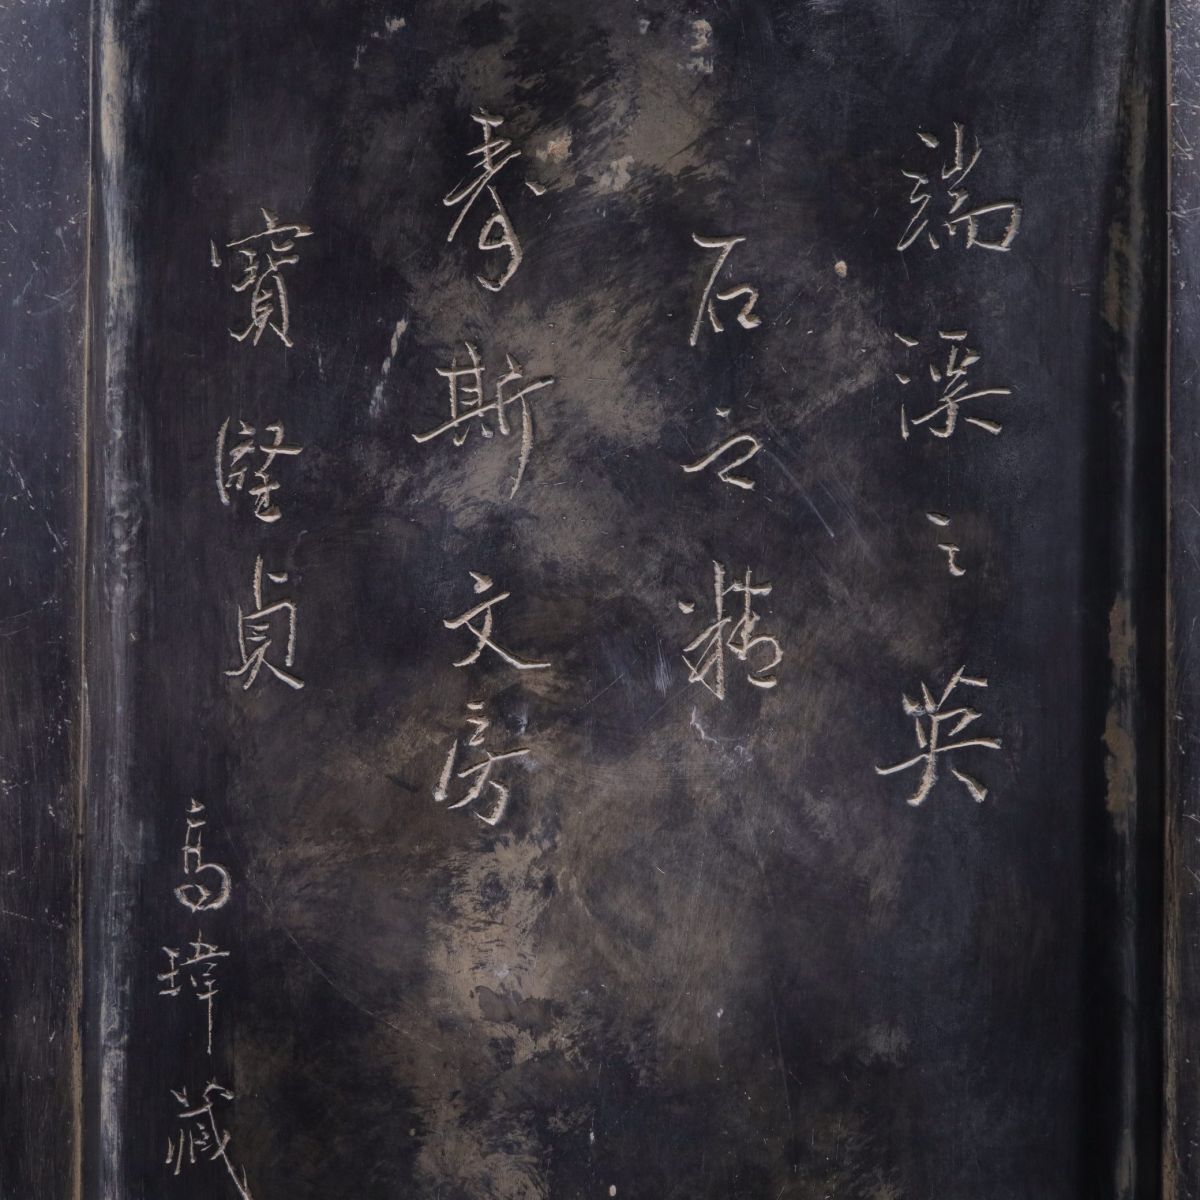 端溪之英
石之精
壽斯文房
寶堅貞
高瑋藏